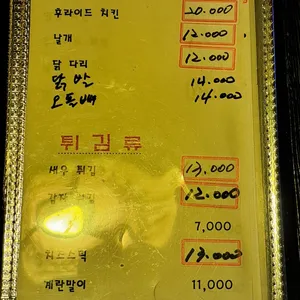 후라이드 치킨 20.000
날개 12.000
닭 다리 12.000
닭발 14.000
오돌뼈 14.000
튀김류
새우 튀김 13.000
12.000
7,000
치즈스틱 13.000
계란말이 11,000